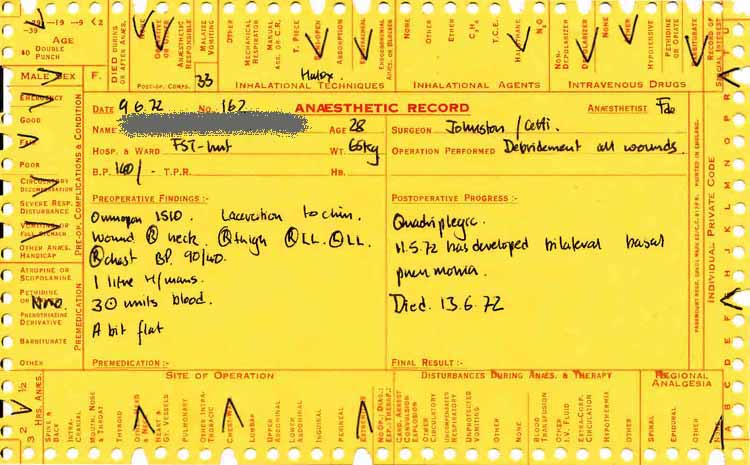 -39
79 -19 -9 <2
40
AGE
DOUBLE PUNCH
DIED DURING OR AFTER ANÆS.
NONE
ANÆSTHETIC RESPONSIBLE
MALAISE VOMITING
OTHER
MECHANICAL RESPIRATOR
T. PIECE
ABSORPTION
NONE
OTHER
ETHER
C₃H₆
T.C.E.
HALOTHANE
N₂O
NON-DEPOLARIZER
DEPOLARIZER
NONE
OTHER
HYPOTENSIVE
PETHIDINE OR OPIATE
BARBITURATE
RECORD OF SPECIAL INTEREST
MALE SEX F.
POST-OP. COMPS.
33
Halox
INHALATIONAL TECHNIQUES
INHALATIONAL AGENTS
INTRAVENOUS DRUGS
DATE 9.6.72 NO. 162
ANÆSTHETIC RECORD
ANÆSTHETIST
NAME
AGE 28
SURGEON Johnston / Cetti.
HOSP. & WARD FST-
WT. 65kg
OPERATION PERFORMED Debridement all wounds.
B.P. 140/- T.P.R.
HB.
PREOPERATIVE FINDINGS:-
POSTOPERATIVE PROGRESS:-
Omnopon 1510. Laceration to chin.
Quadriplegic.
wound Ⓡ neck. Ⓡ thigh Ⓡ LL. Ⓛ LL.
11.5.72 has developed bilateral basal
Ⓡ chest BP. 90/40.
pneumonia.
1 litre H/mans.
Died. 13.6.72
30 units blood.
A bit flat
PREMEDICATION:-
FINAL RESULT:-
EMERGENCY
GOOD
FAIR
POOR
CIRCULATORY DECOMPENSATION
SEVERE RESP. DISTURBANCE
VOMITING OR FULL STOMACH
OTHER ANÆS. HANDICAP
PRE-OP. COMPLICATIONS & CONDITION
ATROPINE OR SCOPOLAMINE
PETHIDINE OR
PHENOTHIAZINE DERIVATIVE
BARBITURATE
OTHER
PREMEDICATION
PRINTED IN ENGLAND.
INDIVIDUAL PRIVATE CODE
A B C D E F G H J K L M N O P
SITE OF OPERATION
DISTURBANCES DURING ANÆS. & THERAPY
REGIONAL ANALGESIA
3 2 1 ½
HRS. ANÆS.
SPINE & BACK
INTRA-CRANIAL
MOUTH, NOSE & THROAT
THYROID
HEART & GT. VESSELS
PULMONARY
OTHER INTRA-THORACIC
LUMBAR
UPPER ABDOMINAL
LOWER ABDOMINAL
INGUINAL
PERINEAL
CARD. ARREST
CONVULSION
EXPLOSION
OTHER CIRCULATORY
UNCOMPENSATED RESPIRATORY
UNPROTECTED VOMITING
OTHER
NONE
BLOOD TRANSFUSION
OTHER I.V. FLUID
EXTRA-CORP. CIRCULATION
HYPOTHERMIA
OTHER
NONE
SPINAL
EPIDURAL
OTHER